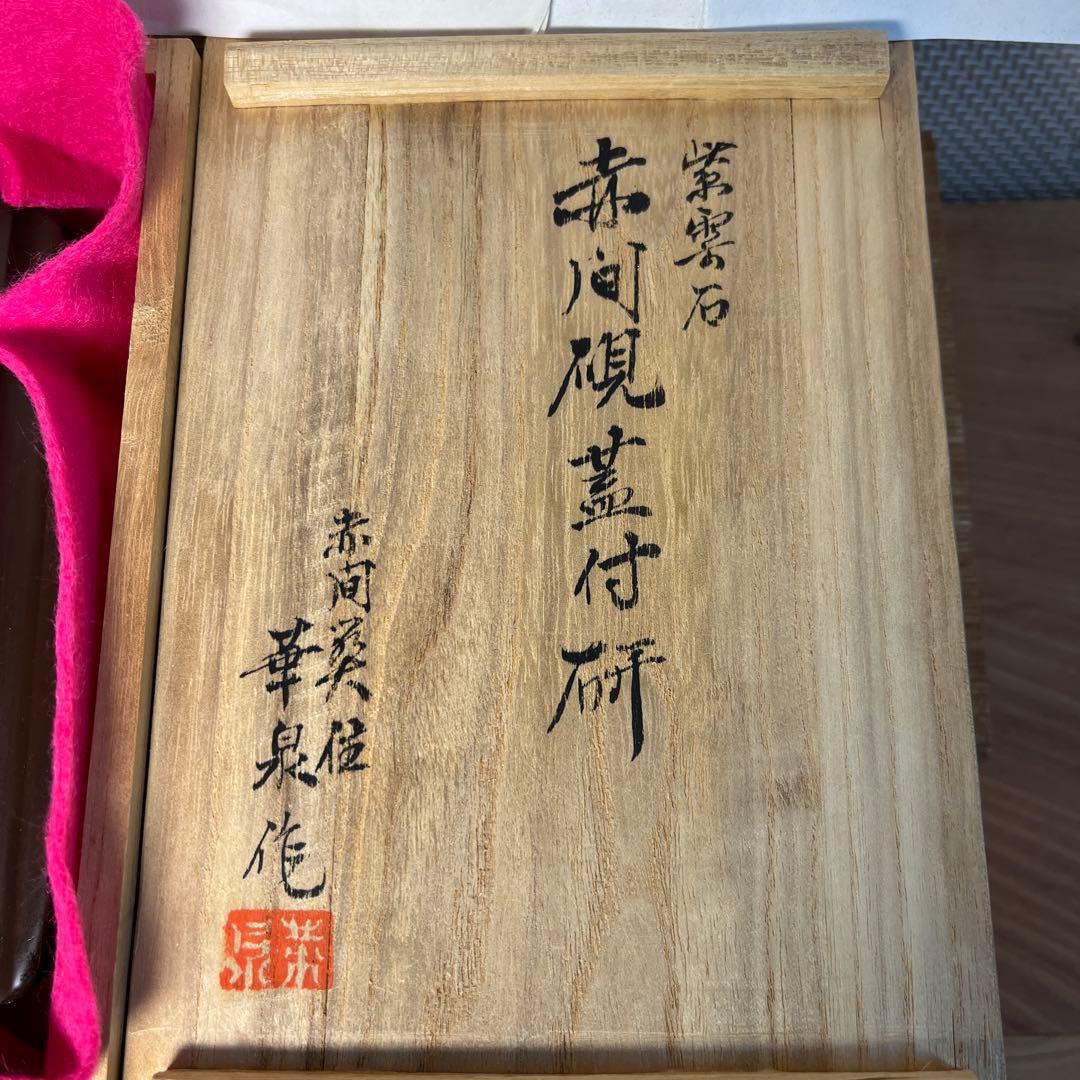 紫雲石
赤间硯蓋付研
赤间葵住
華泉作
華泉